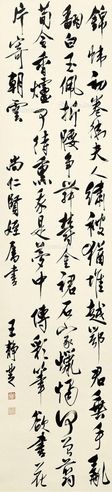 錦幃初卷衛夫人繡被猶堆越鄂君垂手亂
翻白玉佩折腰爭舞鬱金裙石家蠟燭何曾剪
荀令香爐可待熏我是夢中傳彩筆欲書花
片寄朝雲 尚仁賢姪屬書 王靜芝